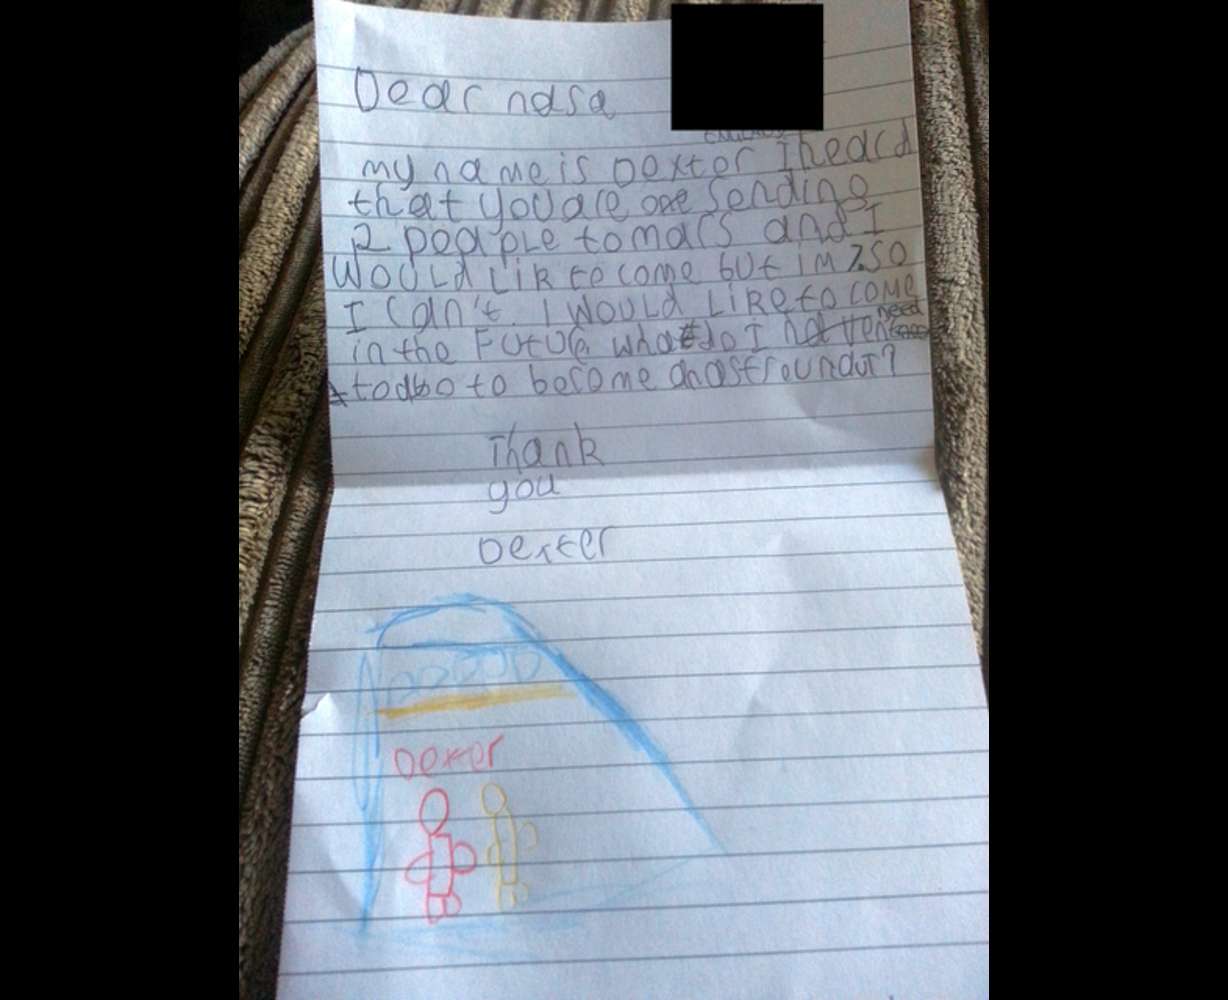 Dear nasa
ENGLAND
my name is Dexter I heard
that you are sending
2 peaple to mars and I
WOULd LiK to come but im 7. SO
I can't. I WOULd LiKe to come
in the FUtUre what do I need
to do to become an astroundut?
Thank
you
Dexter
Dexter